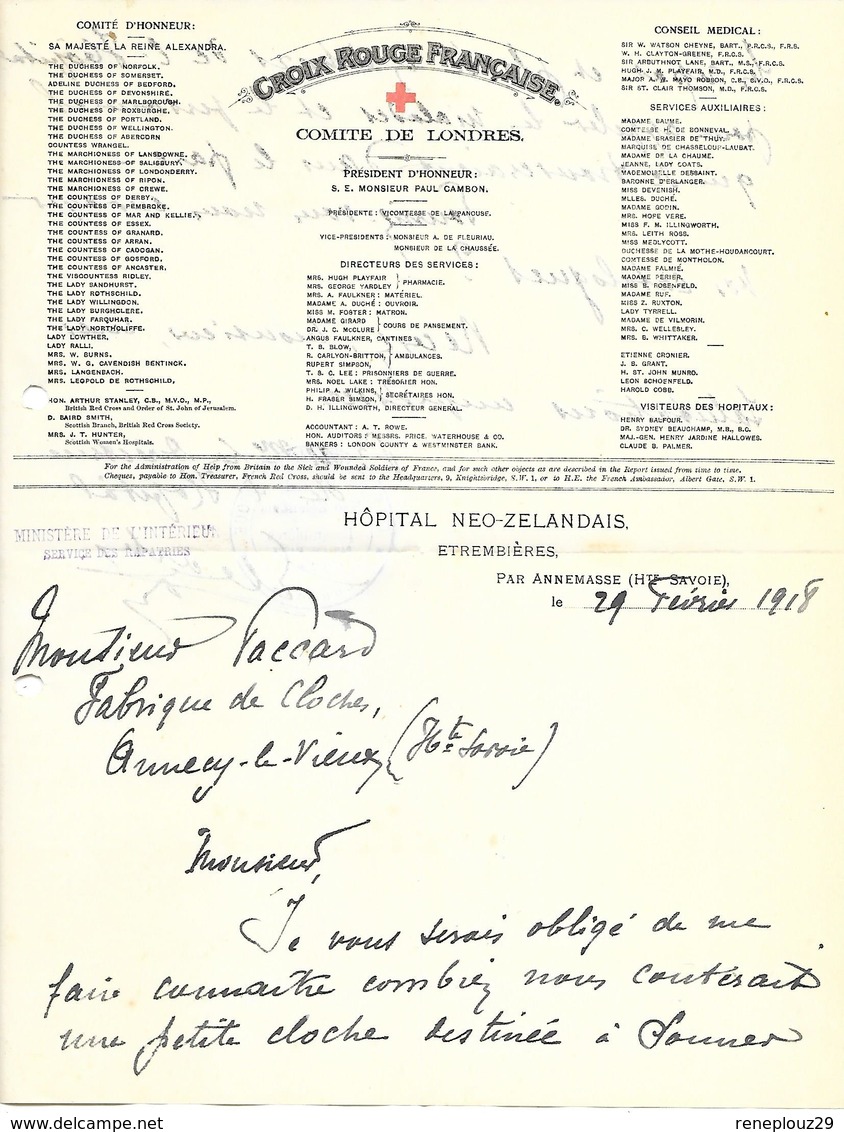 COMITÉ D'HONNEUR:
SA MAJESTÉ LA REINE ALEXANDRA.
THE DUCHESS OF NORFOLK.
THE DUCHESS OF SOMERSET.
ADELINE DUCHESS OF BEDFORD.
THE DUCHESS OF DEVONSHIRE.
THE DUCHESS OF MARLBOROUGH.
THE DUCHESS OF ROXBURGHE.
THE DUCHESS OF PORTLAND.
THE DUCHESS OF WELLINGTON.
THE DUCHESS OF ABERCORN
COUNTESS WRANGEL.
THE MARCHIONESS OF LANSDOWNE.
THE MARCHIONESS OF SALISBURY.
THE MARCHIONESS OF LONDONDERRY.
THE MARCHIONESS OF RIPON.
THE MARCHIONESS OF CREWE.
THE COUNTESS OF DERBY.
THE COUNTESS OF PEMBROKE.
THE COUNTESS OF MAR AND KELLIE.
THE COUNTESS OF ESSEX.
THE COUNTESS OF GRANARD.
THE COUNTESS OF ARRAN.
THE COUNTESS OF CADOGAN.
THE COUNTESS OF GOSFORD.
THE COUNTESS OF ANCASTER.
THE VISCOUNTESS RIDLEY.
THE LADY SANDHURST.
THE LADY ROTHSCHILD.
THE LADY WILLINGDON.
THE LADY BURGHCLERE.
THE LADY FARQUHAR.
THE LADY NORTHCLIFFE.
LADY LOWTHER.
LADY RALLI.
MRS. W. BURNS.
MRS. W. G. CAVENDISH BENTINCK.
MRS. LANGENBACH.
MRS. LEOPOLD DE ROTHSCHILD.
HON. ARTHUR STANLEY, C.B., M.V.O., M.P.,
British Red Cross and Order of St. John of Jerusalem.
D. BAIRD SMITH,
Scottish Branch, British Red Cross Society.
MRS. J. T. HUNTER,
Scottish Women's Hospitals.
CROIX ROUGE FRANÇAISE.
COMITE DE LONDRES.
PRÉSIDENT D'HONNEUR:
S. E. MONSIEUR PAUL CAMBON.
PRÉSIDENTE: VICOMTESSE DE LA PANOUSE.
VICE-PRESIDENTS: MONSIEUR A. DE FLEURIAU.
MONSIEUR DE LA CHAUSSÉE.
DIRECTEURS DES SERVICES:
MRS. HUGH PLAYFAIR
MRS. GEORGE YARDLEY } PHARMACIE.
MRS. A. FAULKNER: MATÉRIEL.
MADAME A. DUCHÉ: OUVROIR.
MISS M. FOSTER: MATRON.
MADAME GIRARD
DR. J. C. McCLURE } COURS DE PANSEMENT.
ANGUS FAULKNER, CANTINES
T. B. BLOW,
R. CARLYON-BRITTON, } AMBULANCES.
RUPERT SIMPSON,
T. S. C. LEE: PRISONNIERS DE GUERRE.
MRS. NOEL LAKE: TRÉSORIER HON.
PHILIP A. WILKINS,
H. FRASER SIMSON, } SECRÉTAIRES HON.
D. H. ILLINGWORTH, DIRECTEUR GENERAL.
ACCOUNTANT: A. T. ROWE.
HON. AUDITORS: MESSRS. PRICE, WATERHOUSE & CO.
BANKERS: LONDON COUNTY & WESTMINSTER BANK.
CONSEIL MEDICAL:
SIR W. WATSON CHEYNE, BART., F.R.C.S., F.R.S.
W. H. CLAYTON-GREENE, F.R.C.S.
SIR ARBUTHNOT LANE, BART., M.S., F.R.C.S.
HUGH J. M. PLAYFAIR, M.D., F.R.C.S.
MAJOR A. W. MAYO ROBSON, C.B., C.V.O., F.R.C.S.
SIR ST. CLAIR THOMSON, M.D., F.R.C.S.
SERVICES AUXILIAIRES:
MADAME BAUME.
COMTESSE H. DE BONNEVAL.
MADAME BRASIER DE THUY.
MARQUISE DE CHASSELOUP-LAUBAT.
MADAME DE LA CHAUME.
JEANNE, LADY COATS.
MADEMOISELLE DESSAINT.
BARONNE D'ERLANGER.
MISS DEVENISH.
MLLES. DUCHÉ.
MADAME GODIN.
MRS. HOPE VERE.
MISS F. M. ILLINGWORTH.
MRS. LEITH ROSS.
MISS MEDLYCOTT.
DUCHESSE DE LA MOTHE-HOUDANCOURT.
COMTESSE DE MONTHOLON.
MADAME PALMIÉ.
MADAME PERIER.
MISS S. ROSENFELD.
MADAME RUF.
MISS Z. RUXTON.
LADY TYRRELL.
MADAME DE VILMORIN.
MRS. C. WELLESLEY.
MRS. S. WHITTAKER.
ETIENNE CRONIER.
J. S. GRANT.
H. ST. JOHN MUNRO.
LEON SCHOENFELD.
HAROLD COBB.
VISITEURS DES HOPITAUX:
HENRY BALFOUR.
DR. SYDNEY BEAUCHAMP, M.B., B.C.
MAJ.-GEN. HENRY JARDINE HALLOWES.
CLAUDE B. PALMER.
For the Administration of Help from Britain to the Sick and Wounded Soldiers of France, and for such other objects as are described in the Report issued from time to time.
Cheques, payable to Hon. Treasurer, French Red Cross, should be sent to the Headquarters, 9, Knightsbridge, S.W. 1, or to H.E. the French Ambassador, Albert Gate, S.W. 1.
MINISTÈRE DE L'INTÉRIEUR
SERVICE DES RAPATRIÉS
HÔPITAL NEO-ZELANDAIS,
ETREMBIÈRES,
PAR ANNEMASSE (HTE SAVOIE),
le 29 Février 1918
Monsieur Paccard
Fabrique de Cloches,
Annecy-le-Vieux (Hte Savoie)
Monsieur,
Je vous serais obligé de me
faire connaitre combien nous couterait
une petite cloche destinée à Sonner
reneplouz29